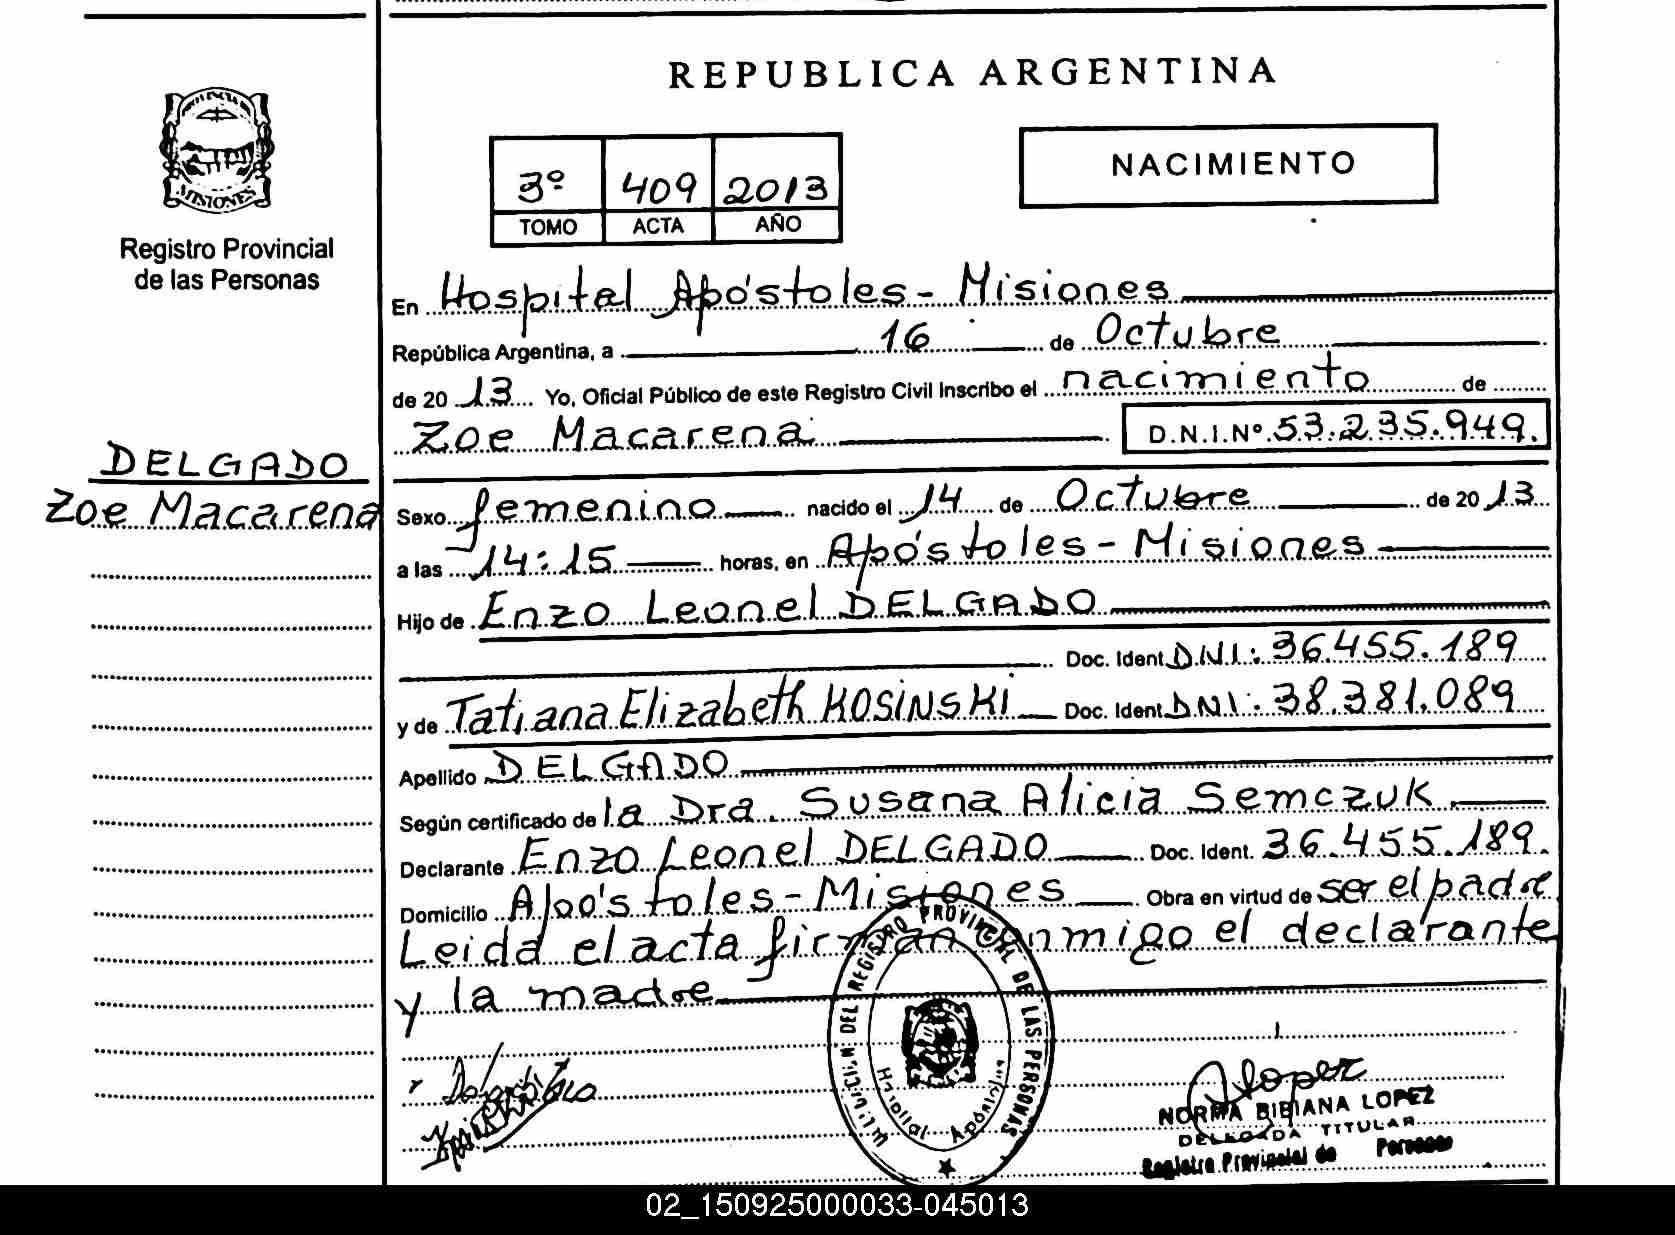 REPUBLICA ARGENTINA
PROVINCIA DE
MISIONES
Registro Provincial
de las Personas
3º 409 2013
TOMO ACTA AÑO
NACIMIENTO
En Hospital Apóstoles - Misiones
República Argentina, a 16 de Octubre
de 20 13 Yo, Oficial Público de este Registro Civil Inscribo el nacimiento de
Zoe Macarena D.N.I.Nº 53.235.949.
DELGADO
Zoe Macarena
Sexo femenino nacido el 14 de Octubre de 20 13
a las 14:15 horas, en Apóstoles - Misiones
Hijo de Enzo Leonel DELGADO
Doc. Ident. DNI: 36.455.189
y de Tatiana Elizabeth KOSINSKI Doc. Ident. DNI: 38.381.089
Apellido DELGADO
Según certificado de la Dra. Susana Alicia Semczuk
Declarante Enzo Leonel DELGADO Doc. Ident. 36.455.189.
Domicilio Apóstoles - Misiones Obra en virtud de ser el padre
Leida el acta firman conmigo el declarante
y la madre
DEL REGISTRO PROVINCIAL DE LAS PERSONAS
Hospital Apóstoles
Lopez
NORMA BIBIANA LOPEZ
DELEGADA TITULAR
Registro Provincial de Personas
02_150925000033-045013